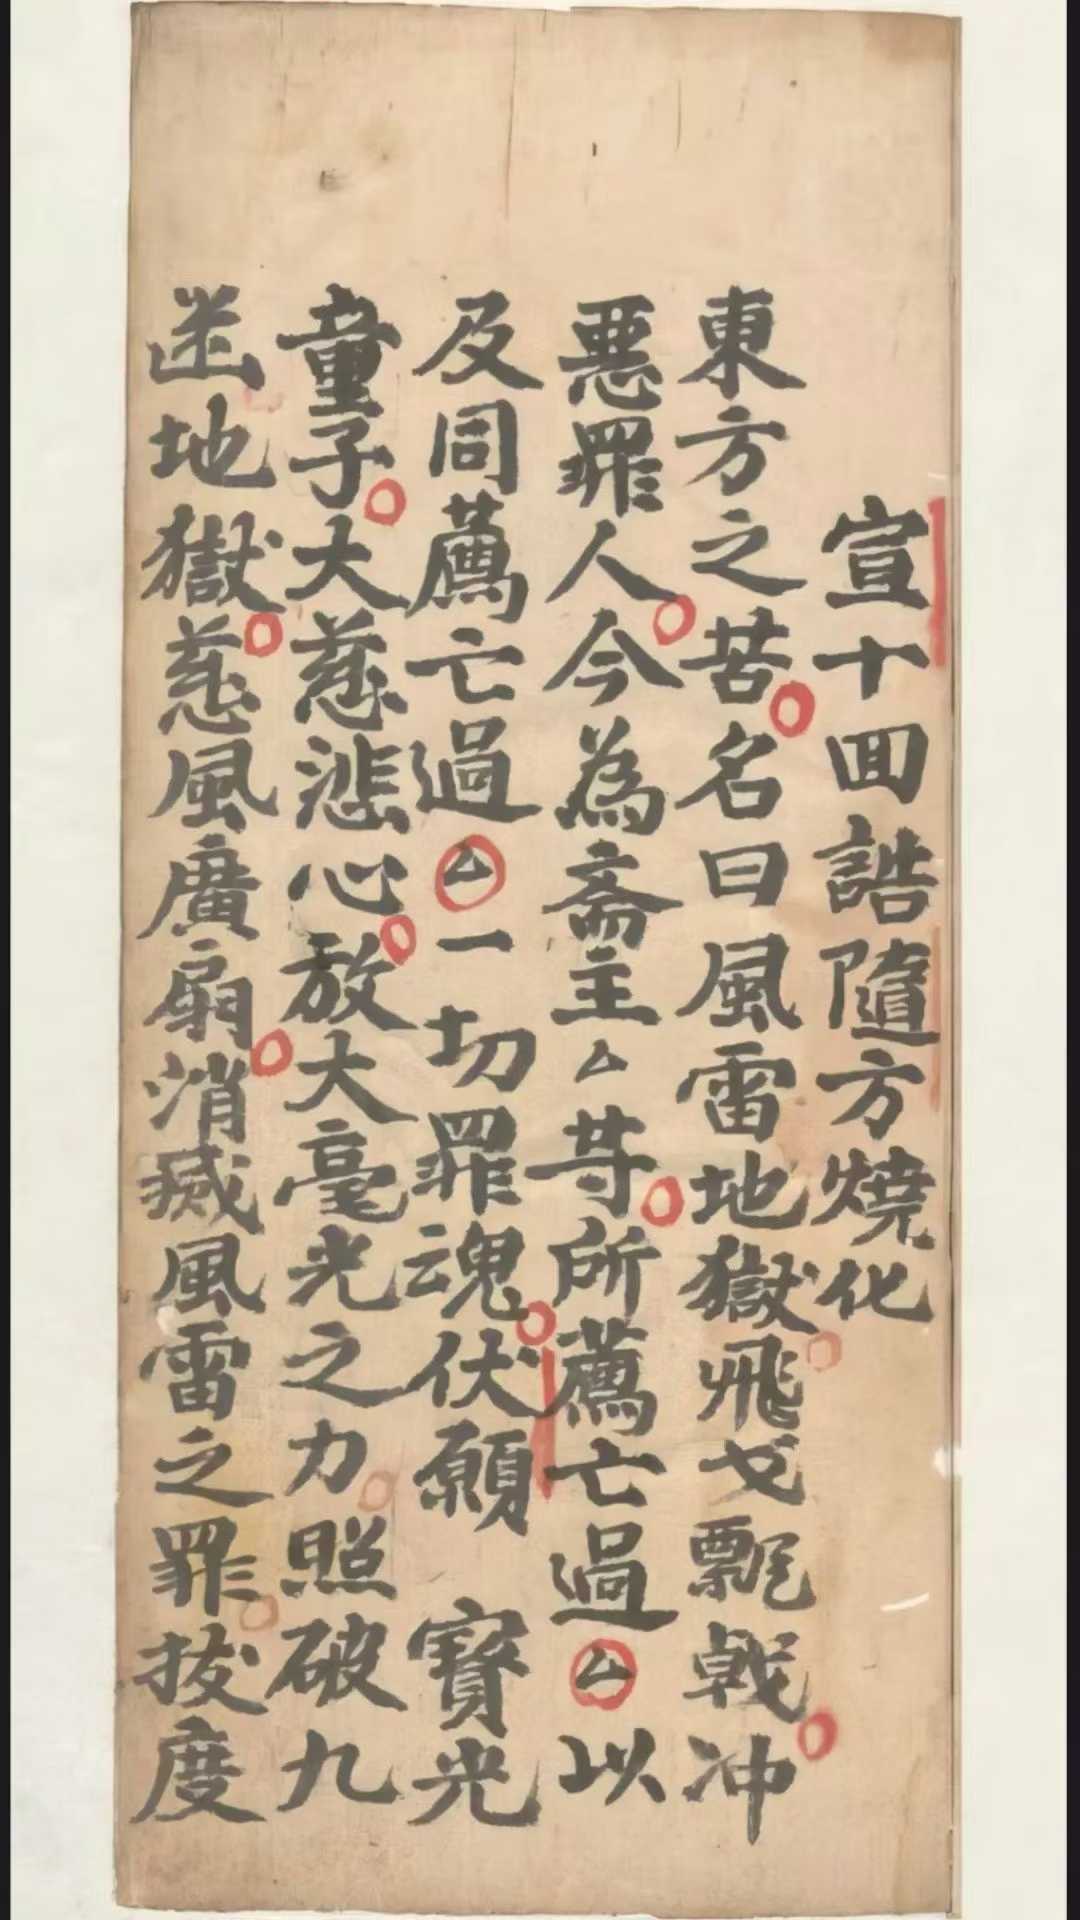 宣十回誥隨方燒化
東方之苦名曰風雷地獄飛戈飄戟冲
惡罪人今為斋主厶䓁所薦亡過厶以
及同薦亡過厶一切罪魂伏願 寶光
童子大慈悲心放大毫光之力照破九
幽地獄慈風廣扇消滅風雷之罪拔度